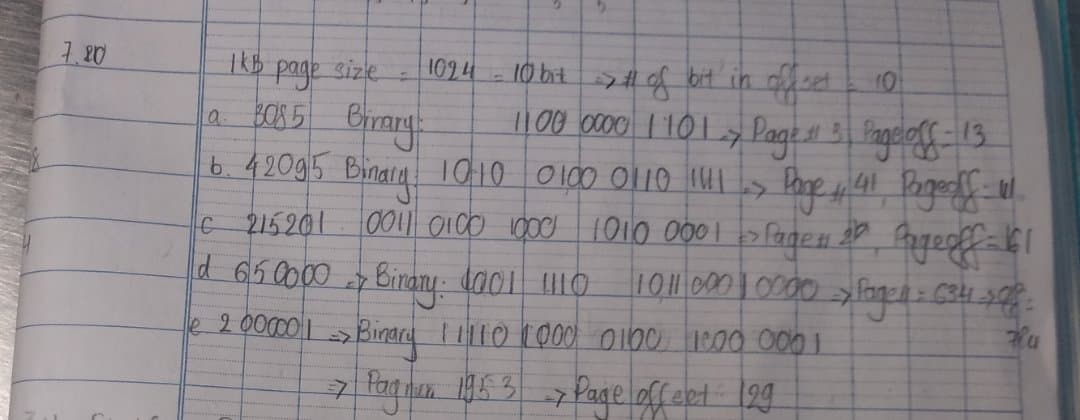 7.20 1KB page size = 1024 = 10 bit => # of bit in offset = 10
a. 3085 Binary: 1100 0000 1101 -> Page # 3, Pageoff = 13
b. 42095 Binary 1010 0100 0110 1111 -> Page # 41, Pageoff =
c 215201 0011 0100 1000 1010 0001 => Page #, Pageoff =
d 650000 -> Binary: 1001 1110 1011 0001 0000 -> Page # = 634 -> off =
e 2000001 => Binary 11110 1000 0100 1000 0001
=> Pagnum 1953 -> Page offset 129